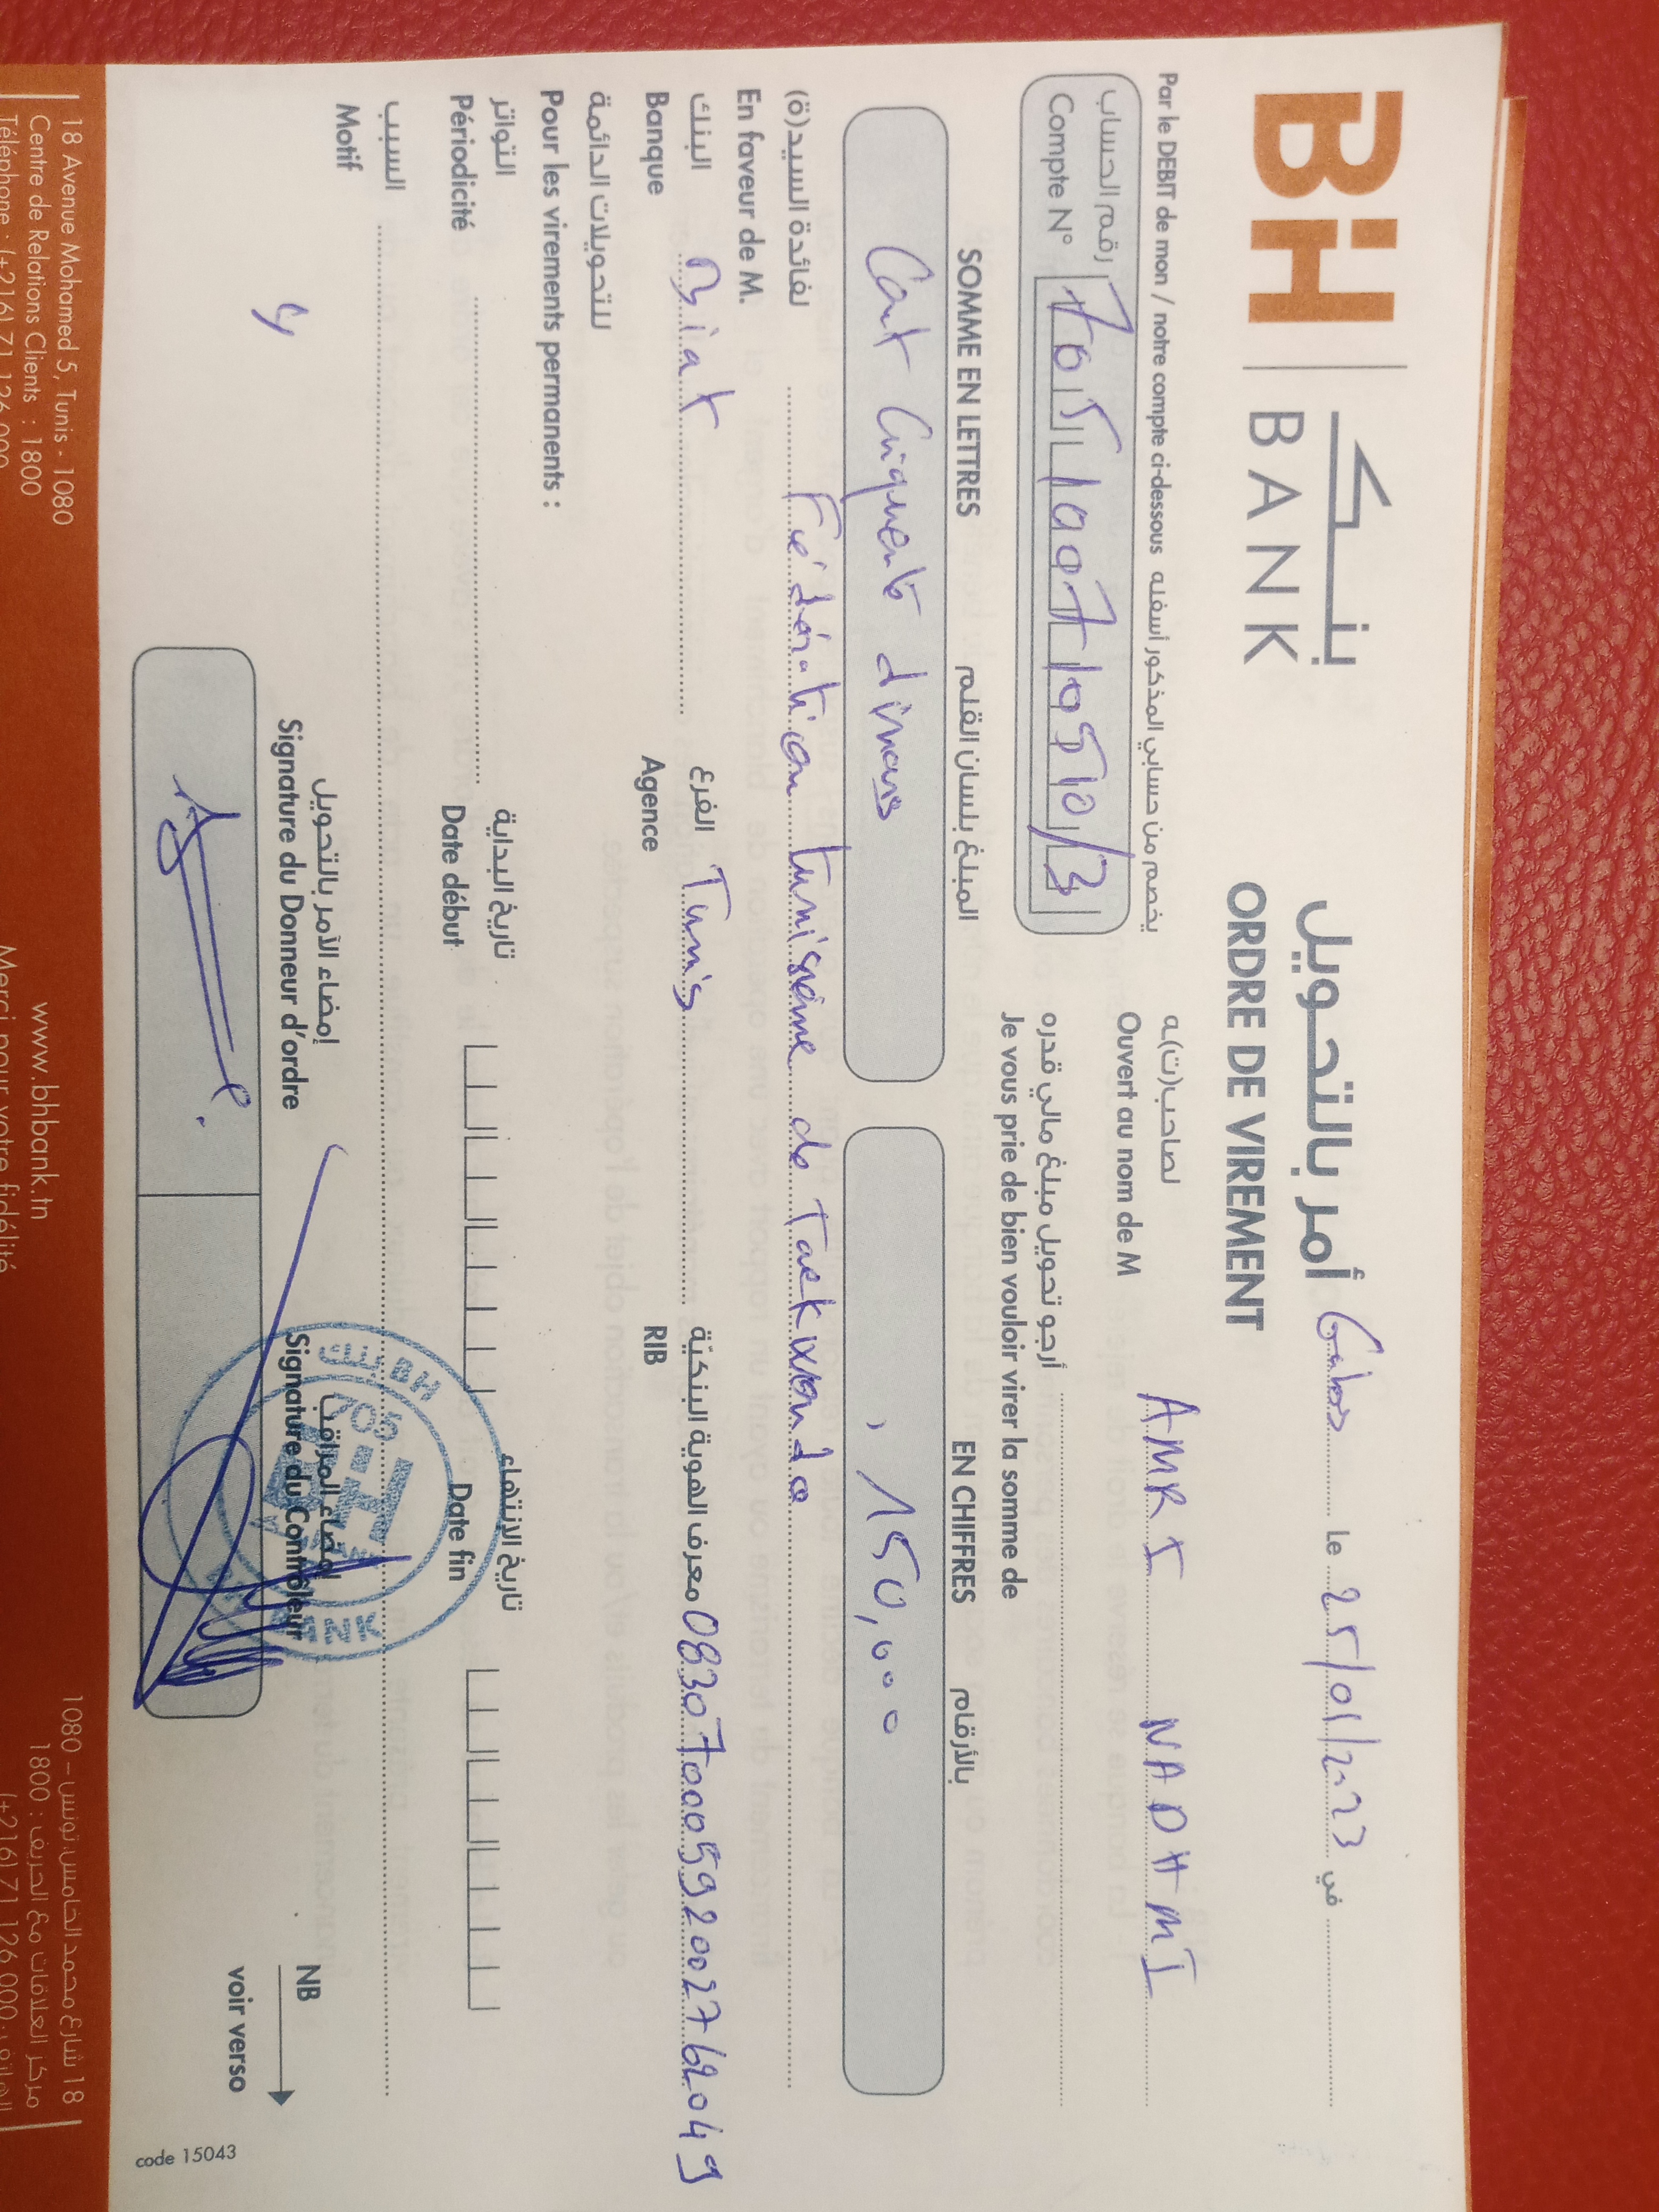 BH | بنك
BANK
أمر بالتحويل
ORDRE DE VIREMENT
Gabes le 25/01/2023 في
Par le DEBIT de mon / notre compte ci-dessous يخصم من حسابي المذكور أسفله
رقم الحساب
Compte N° 705/100710510/3
لصاحب(ت)ه
Ouvert au nom de M AMRI NADHMI
أرجو تحويل مبلغ مالي قدره
Je vous prie de bien vouloir virer la somme de
SOMME EN LETTRES المبلغ بلسان القلم
EN CHIFFRES بالأرقام
Cent Cinquante dinars
, 150,000
لفائدة السيد(ة)
En faveur de M. Fédération tunisienne de Taekwondo
البنك
Banque Biat
الفرع
Agence Tunis
معرف الهوية البنكية
RIB 08307000592002762049
للتحويلات الدائمة
Pour les virements permanents :
التواتر
Périodicité
تاريخ البداية
Date début
تاريخ الإنتهاء
Date fin
السبب
Motif
إمضاء الآمر بالتحويل
Signature du Donneur d'ordre
إمضاء المراقب
Signature du Contrôleur
BH بنك
705
BH
BANK
NB
voir verso
code 15043
18 Avenue Mohamed 5, Tunis - 1080
Centre de Relations Clients : 1800
Téléphone : (+216) 71 126 000
www.bhbank.tn
Merci pour votre fidélité
18 شارع محمد الخامس تونس – 1080
مركز العلاقات مع الحريف : 1800
الهاتف : (+216) 71 126 000